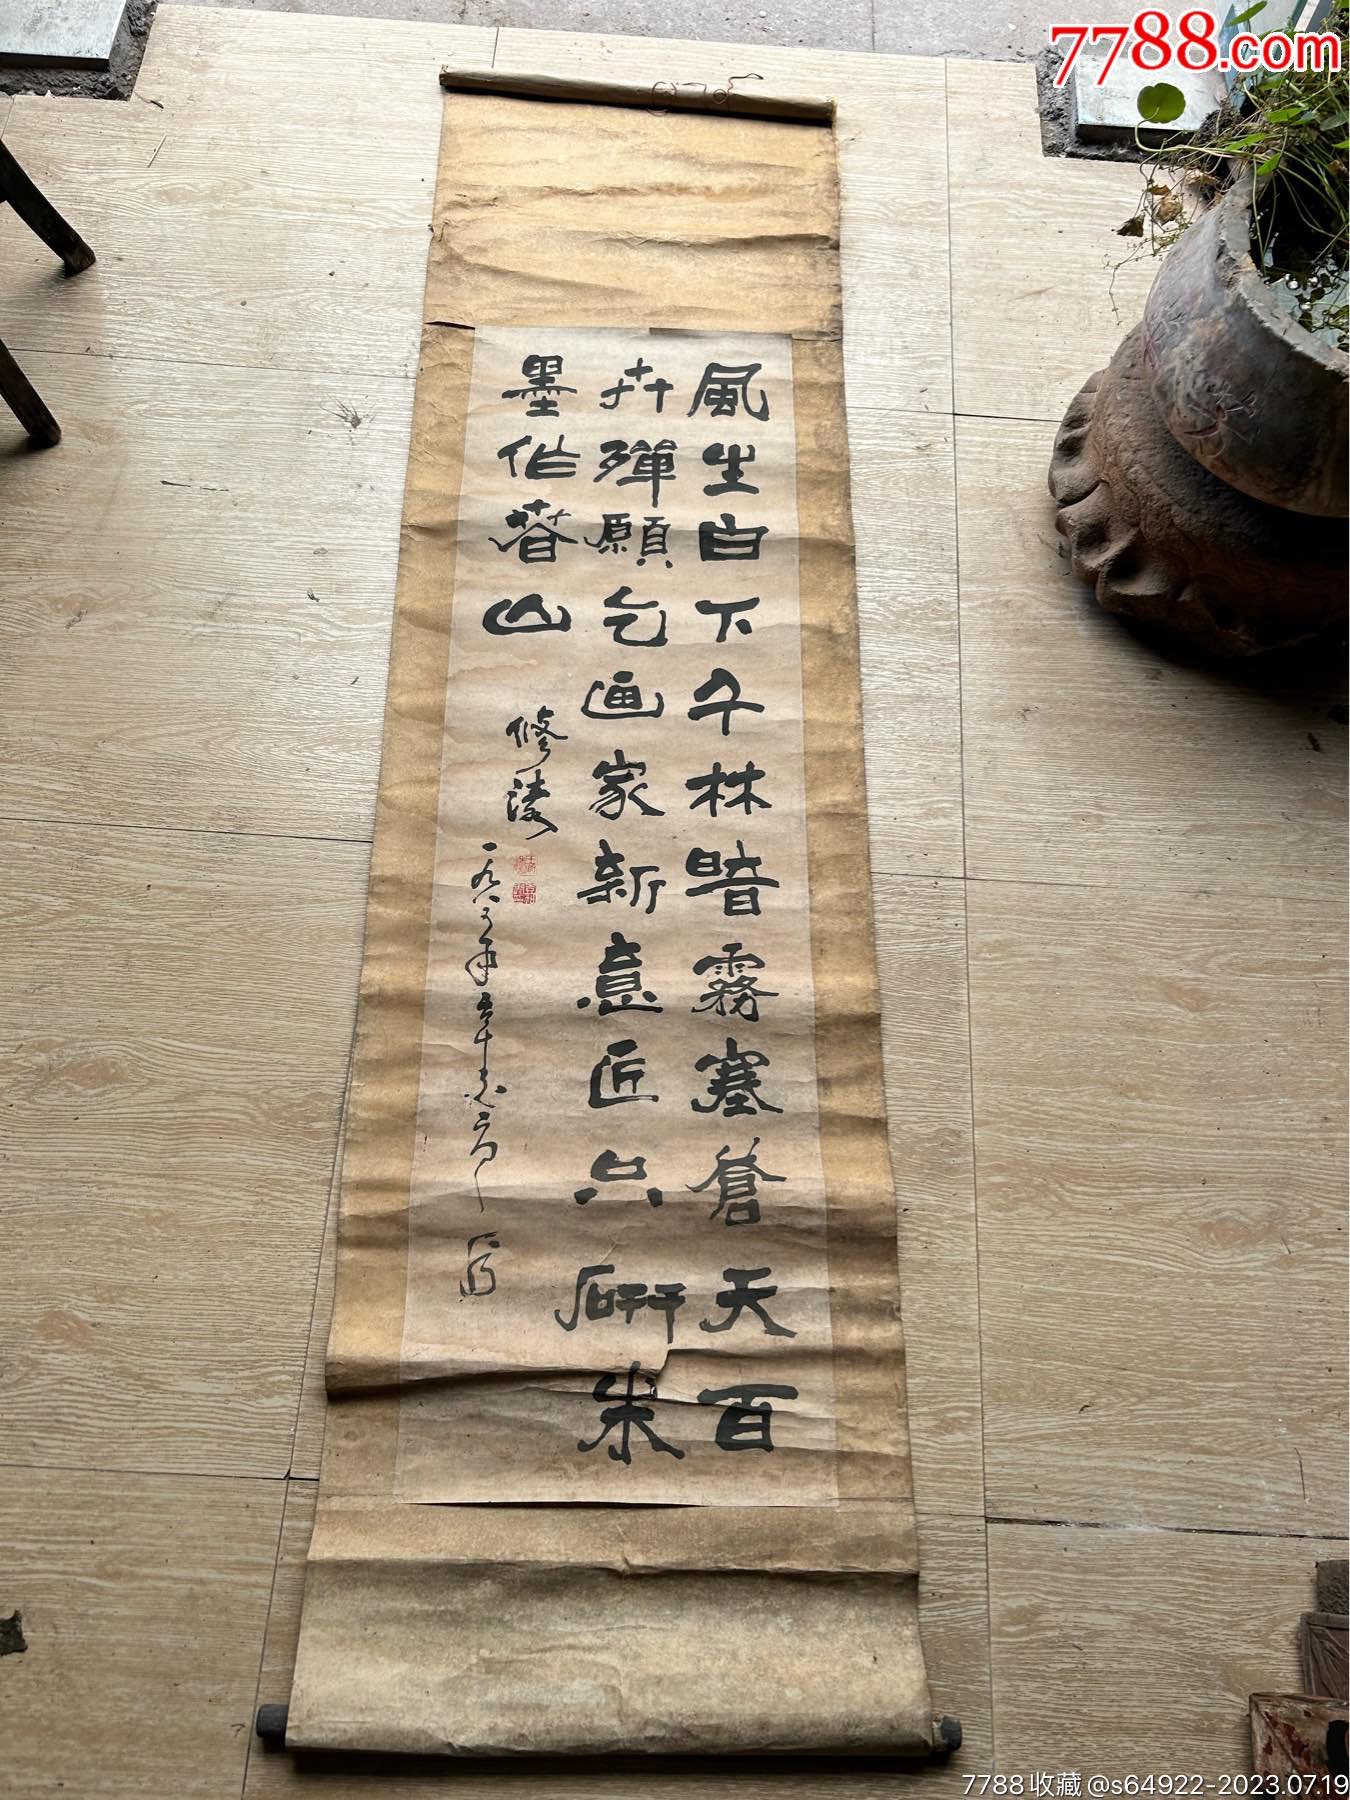 7788.com
風生白下千林暗霧塞蒼天百
卉殫願乞画家新意匠只研朱
墨作春山
修陵
一九八
7788收藏@s64922-2023.07.19